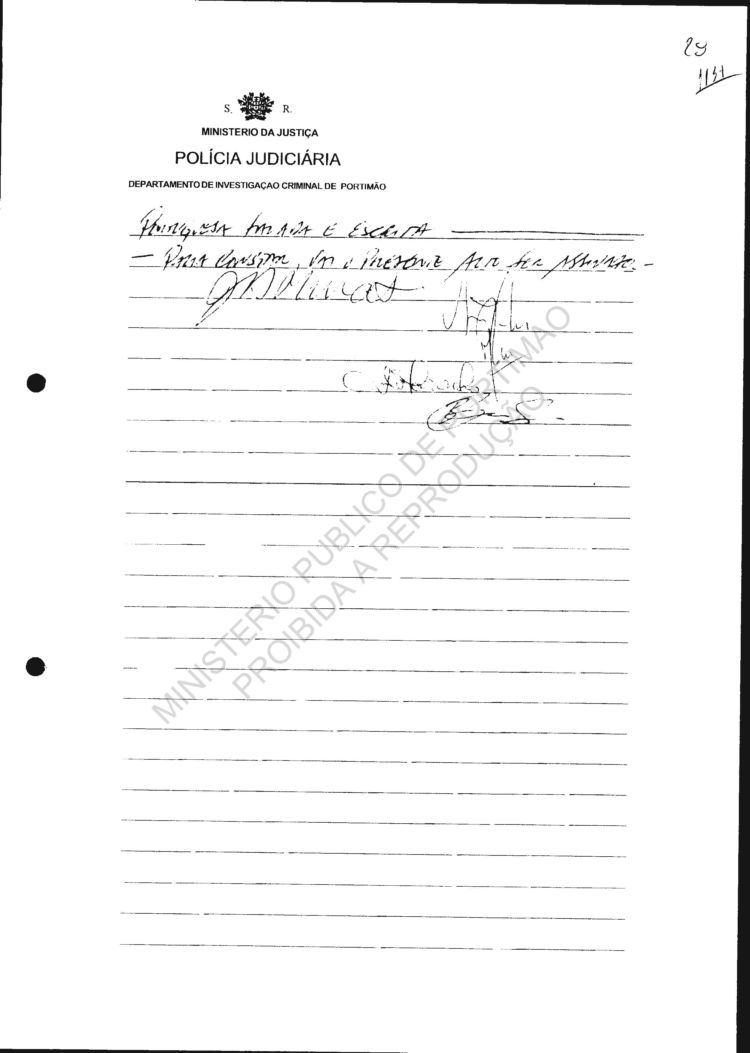 29
1131
S. R.
MINISTERIO DA JUSTIÇA
POLÍCIA JUDICIÁRIA
DEPARTAMENTO DE INVESTIGAÇAO CRIMINAL DE PORTIMÃO
PORTUGUESA FALADA E ESCRITA
— PARA CONSTAR, VAI O PRESENTE AUTO SER ASSINADO. –
MINISTERIO PUBLICO DE PORTIMAO
PROIBIDA A REPRODUÇÃO